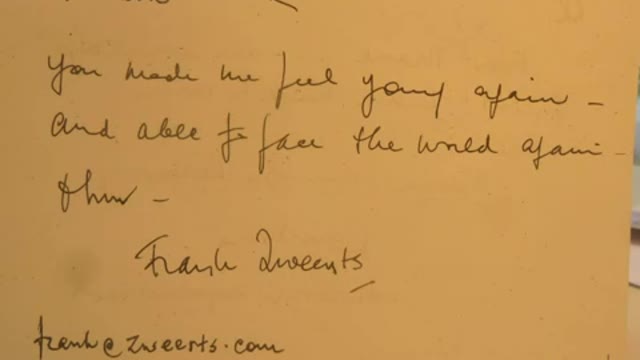 You made me feel young again –
and able to face the world again –
thus –
Frank Zweerts
frank@zweerts.com